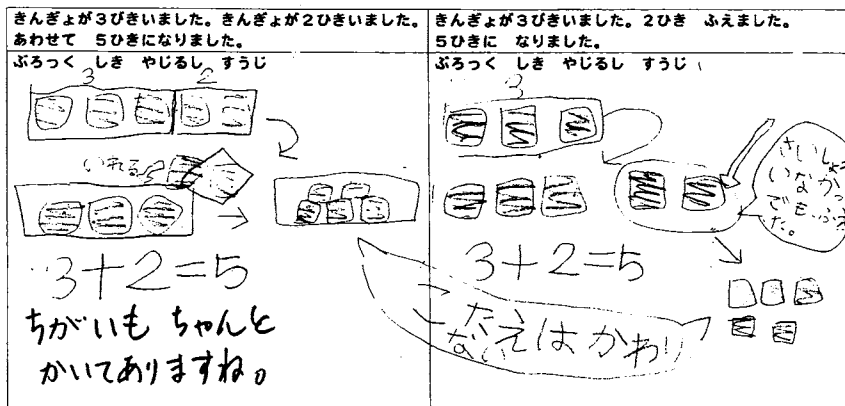 きんぎょが３びきいました。きんぎょが２ひきいました。
あわせて　５ひきになりました。
ぶろっく　しき　やじるし　すうじ
3　2
いれる
3+2=5
ちがいも ちゃんと
かいてありますね。
きんぎょが３びきいました。２ひき　ふえました。
５ひきに　なりました。
ぶろっく　しき　やじるし　すうじ
3
さいしょ
いなかっ
でも、ふ
た。
3+2=5
こたえはかわり
ない